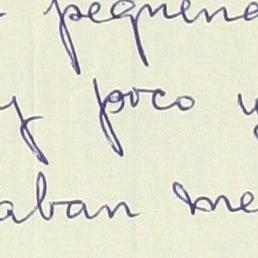 pequeña
y poco y
aban me